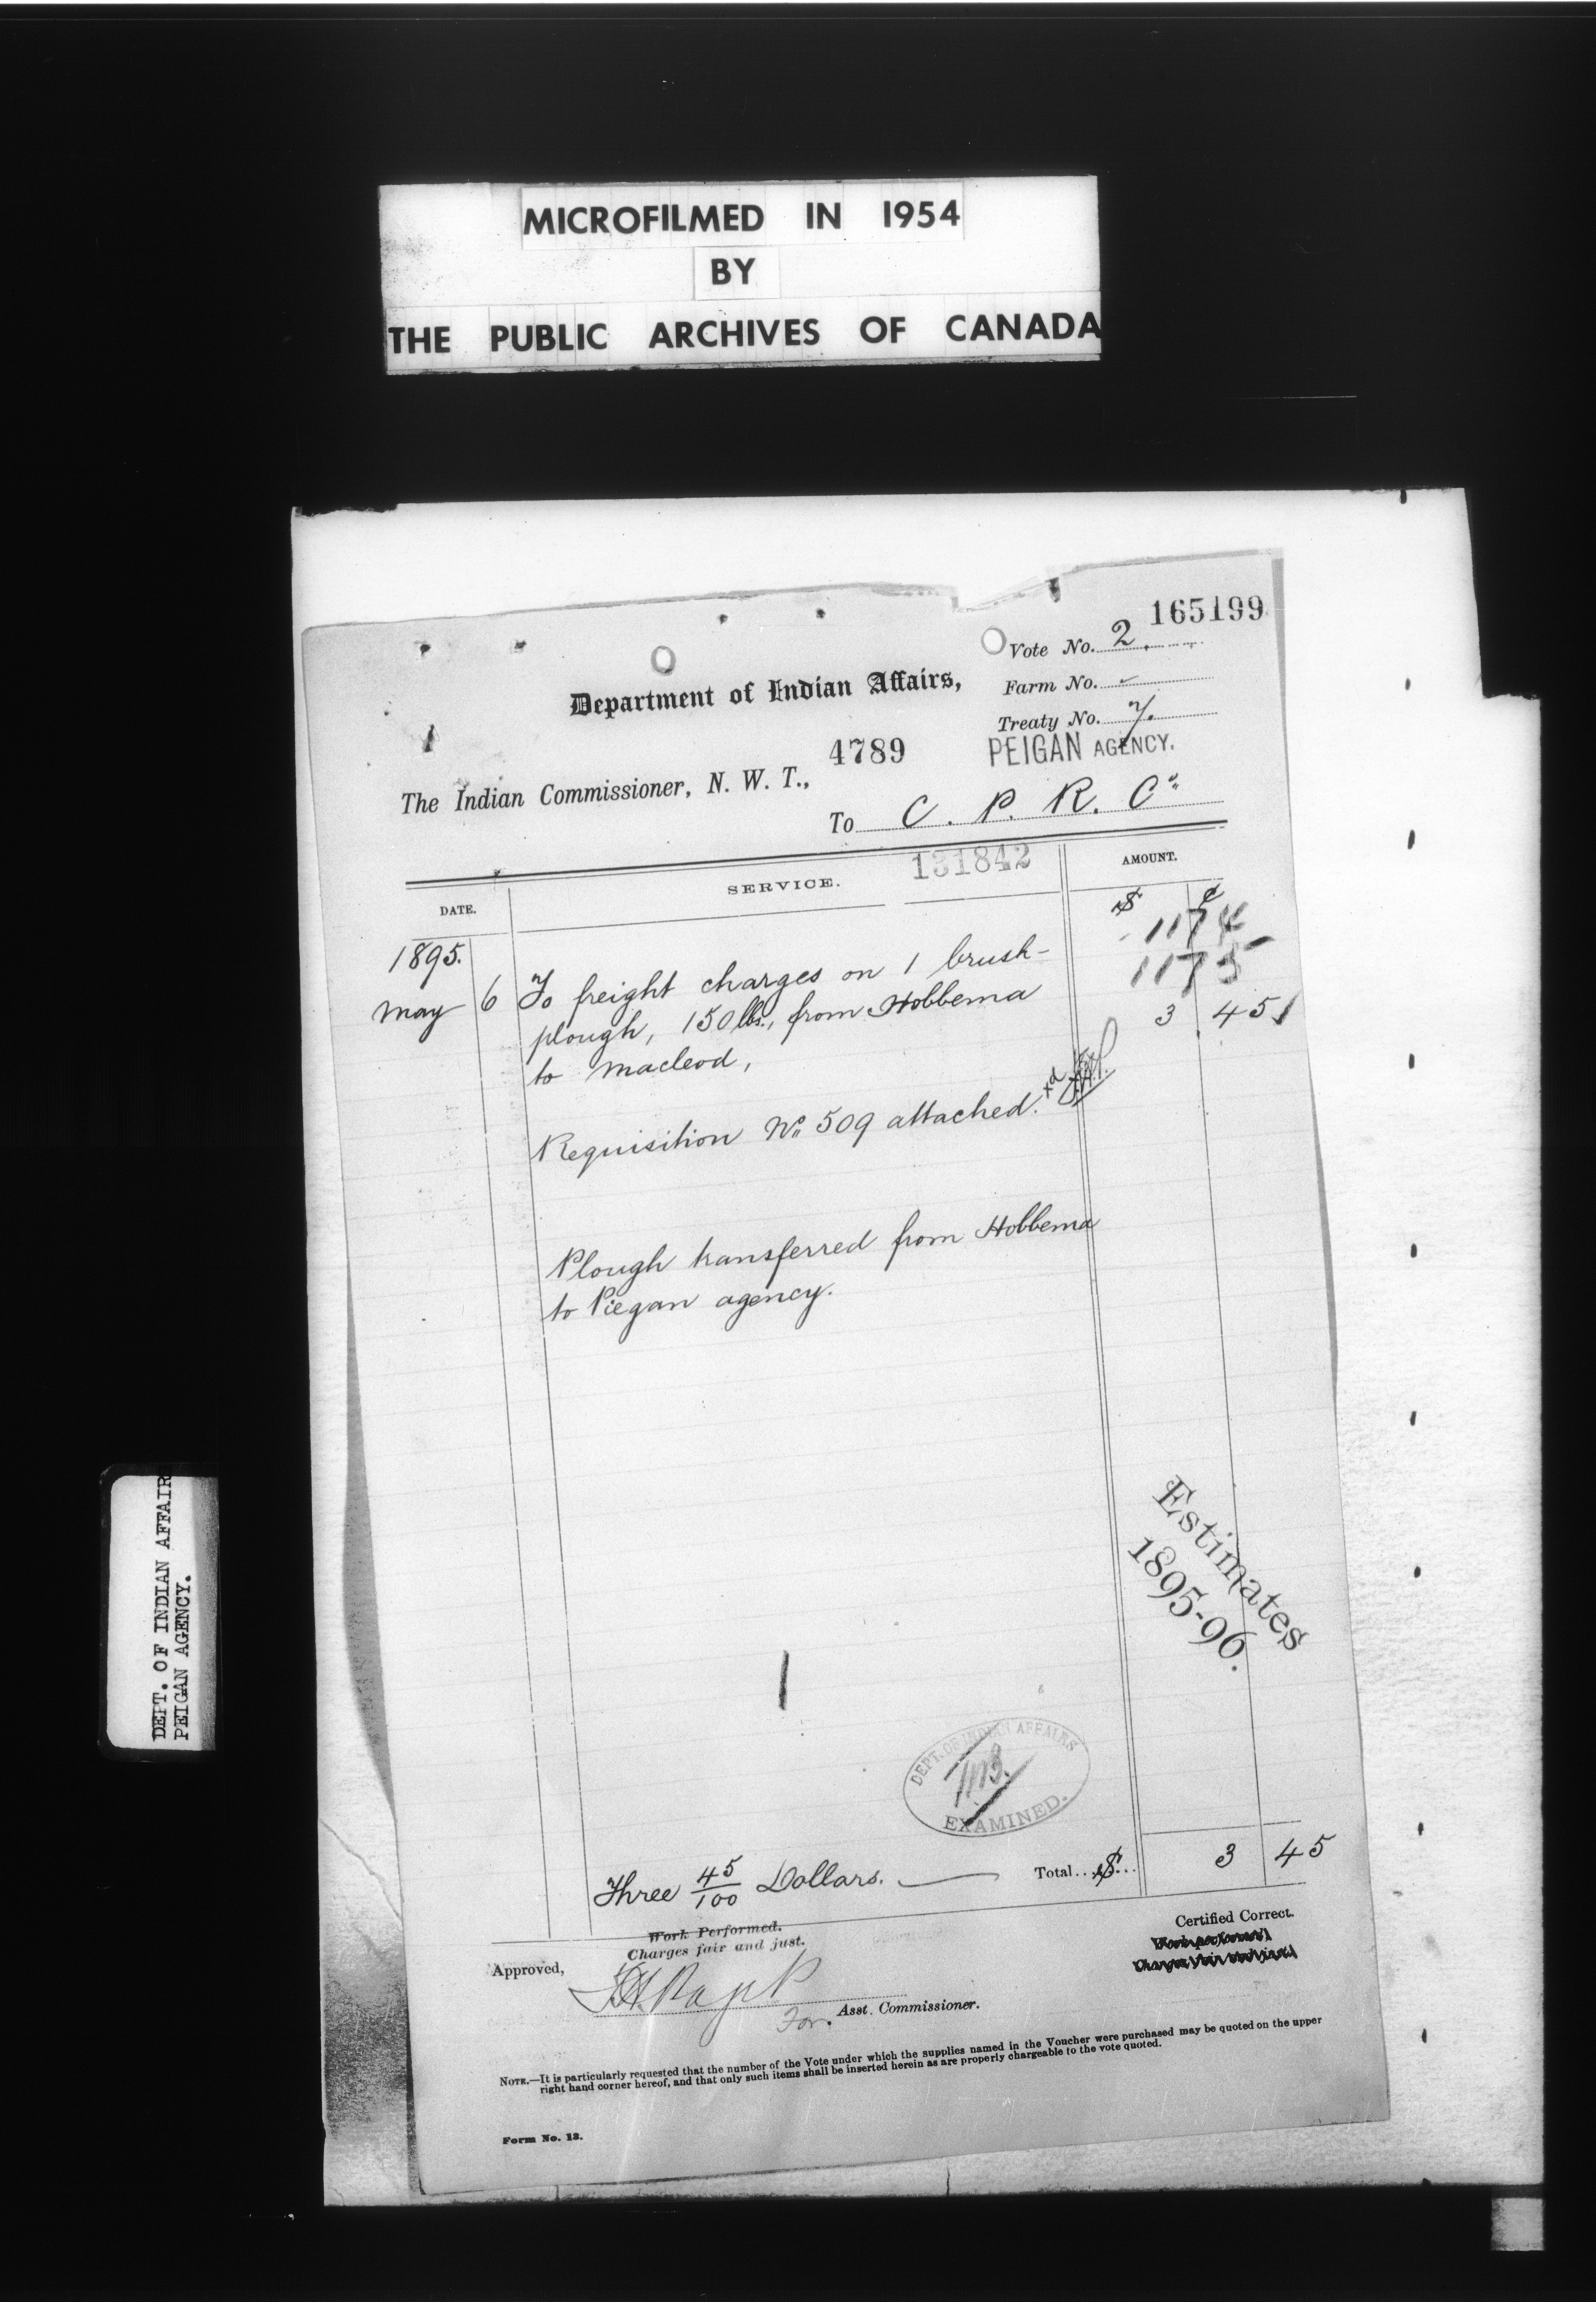 MICROFILMED IN 1954
BY
THE PUBLIC ARCHIVES OF CANADA
165199
Vote No. 2.
Department of Indian Affairs,
Farm No.
Treaty No. 7.
4789
PEIGAN AGENCY.
The Indian Commissioner, N. W. T.,
To C. P. R. Co
131842
DATE.
SERVICE.
AMOUNT.
$ ¢
1174
1175
1895.
May 6 To freight charges on 1 brush-
plough, 150 lbs., from Hobbema
3 45
to Macleod,
Requisition No 509 attached.
Plough transferred from Hobbema
to Piegan agency.
Estimates
1895-96.
DEPT. OF INDIAN AFFAIRS
EXAMINED.
Three 45/100 Dollars. Total...$... 3 45
Work Performed.
Charges fair and just.
Certified Correct.
Approved,
For. Asst. Commissioner.
NOTE.—It is particularly requested that the number of the Vote under which the supplies named in the Voucher were purchased may be quoted on the upper
right hand corner hereof, and that only such items shall be inserted herein as are properly chargeable to the vote quoted.
Form No. 13.
DEPT. OF INDIAN AFFAIR
PEIGAN AGENCY.